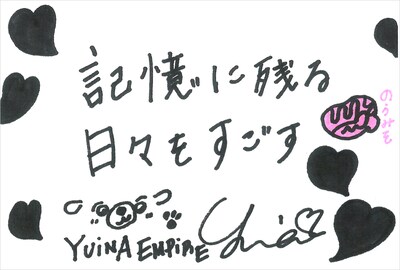 記憶に残る
日々をすごす
のうみそ
YUINA EMPIRE
Yuina